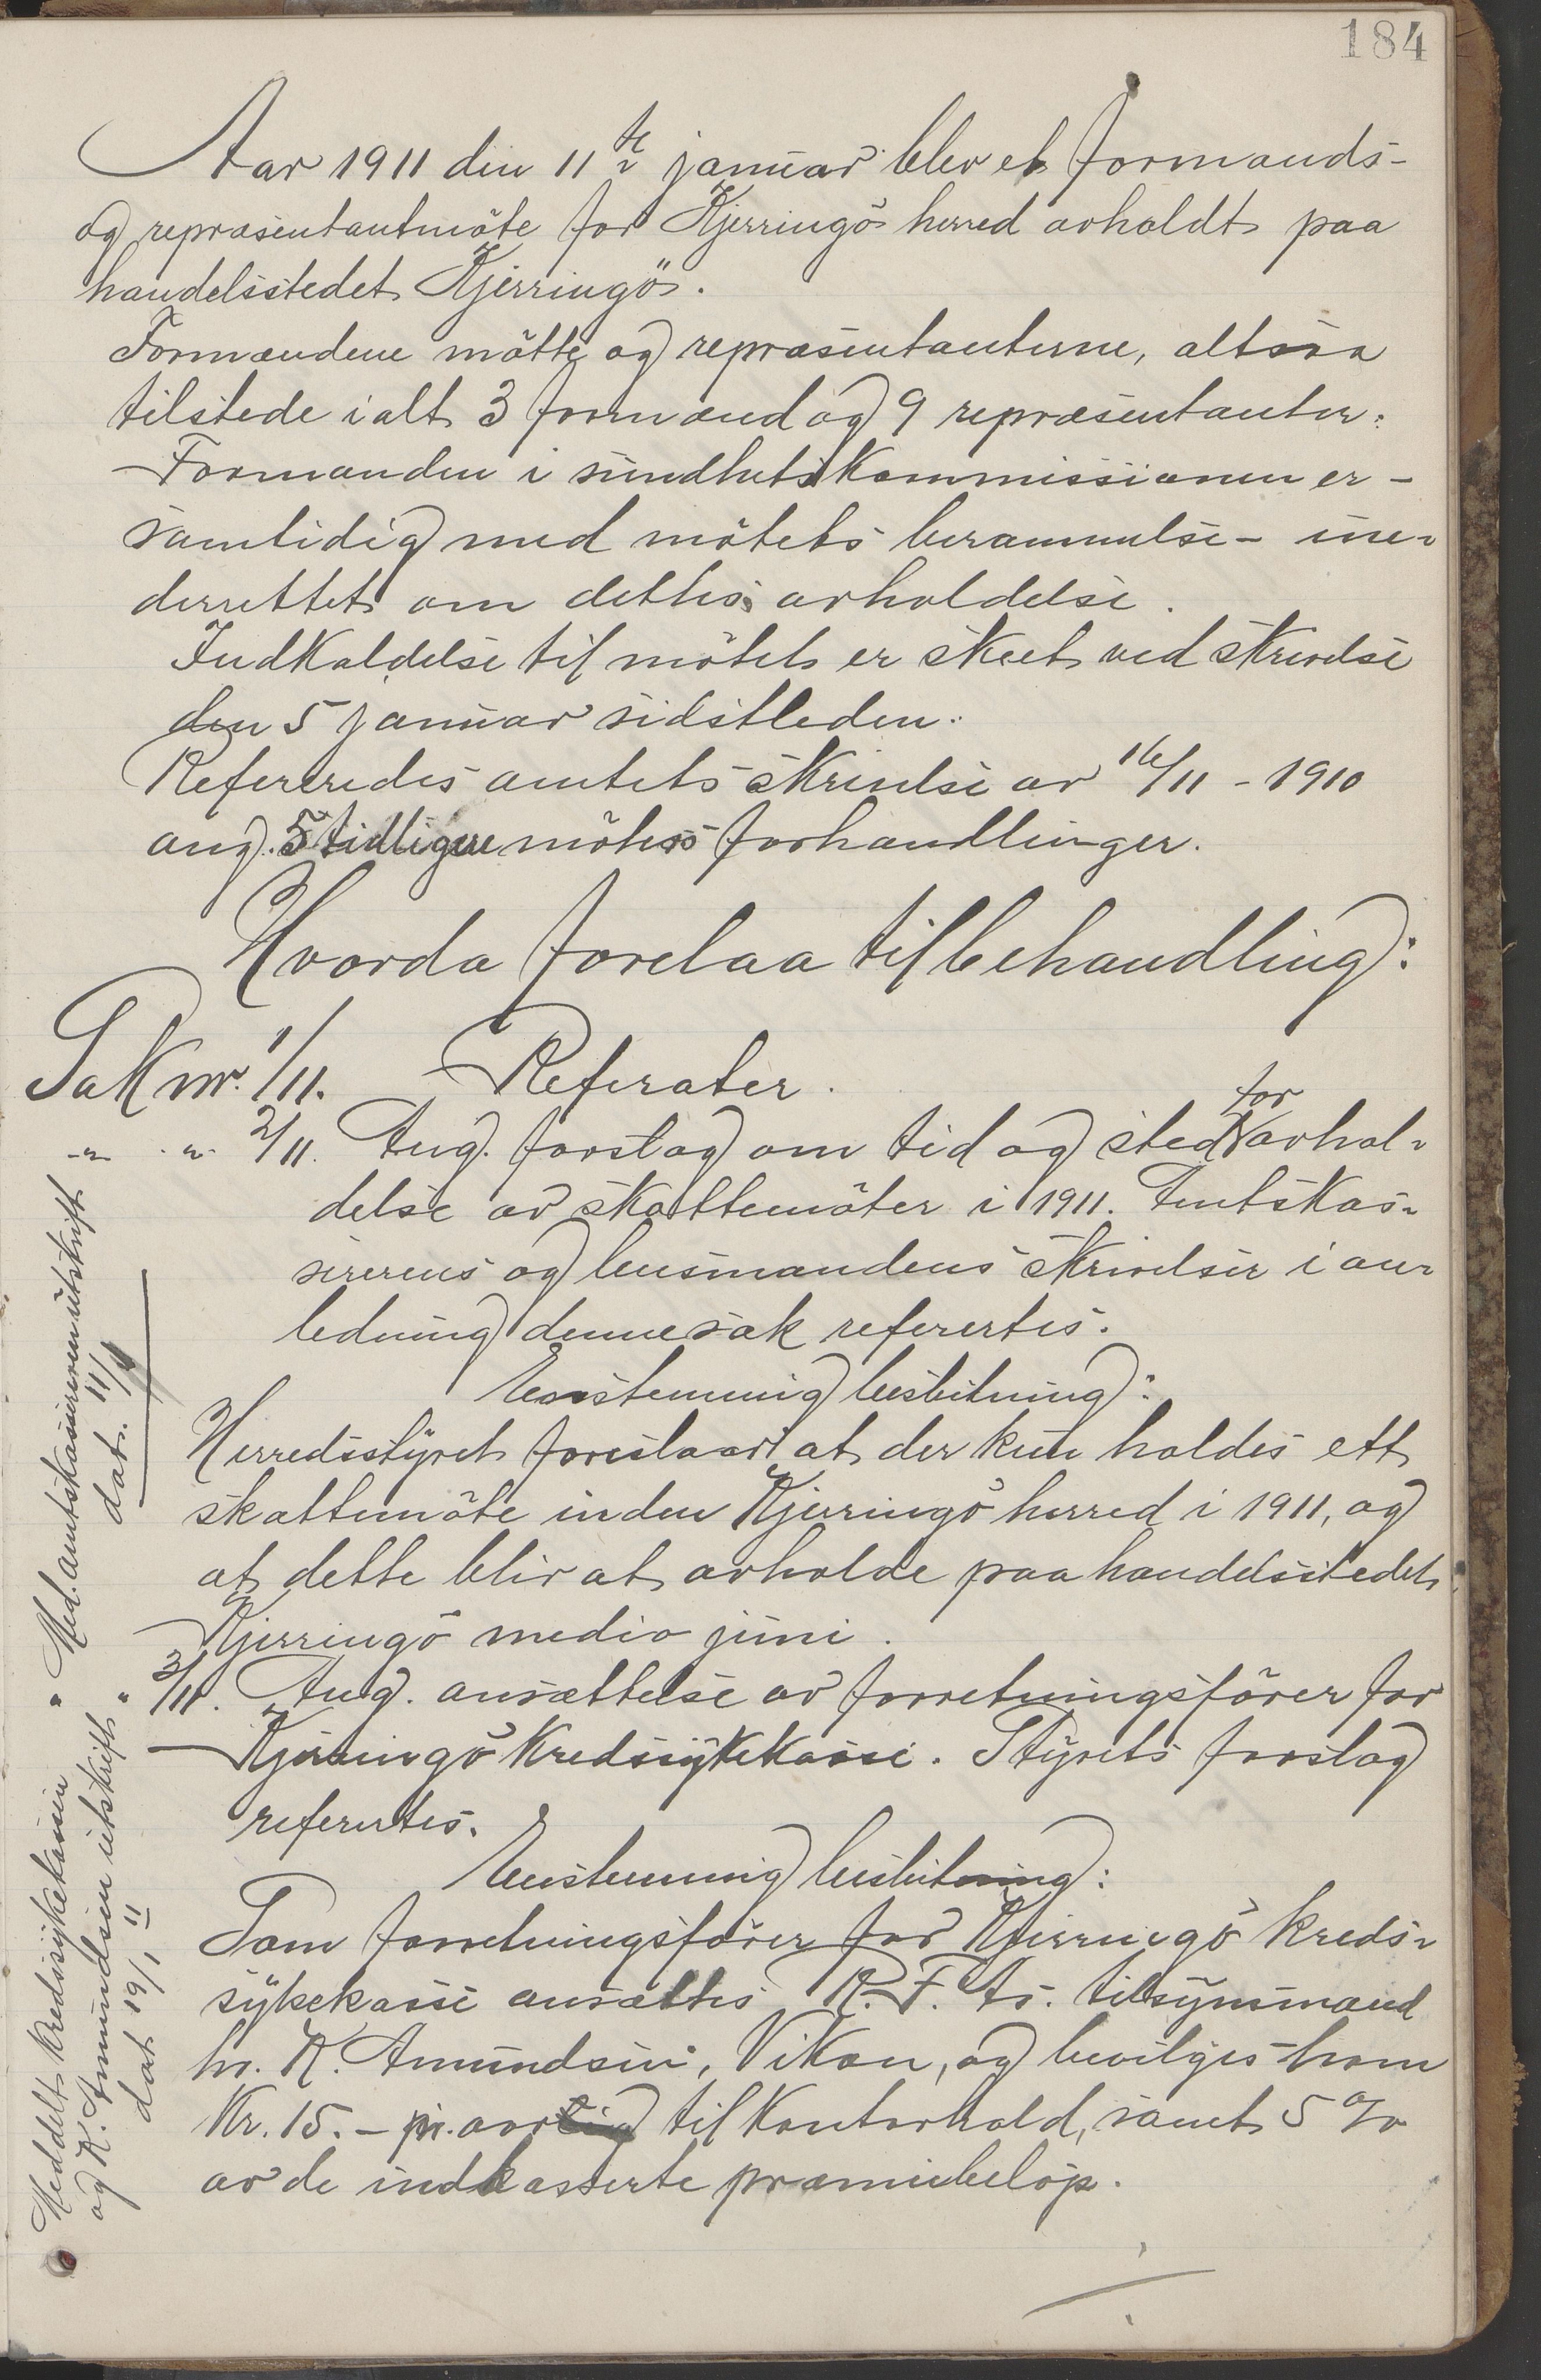 184
Aar 1911 den 11te januar blev et formands-
og repræsentantmöte for Kjerringö herred avholdt paa
handelsstedet Kjerringö.
Formændene mötte og repræsentanterne, altsaa
tilstede ialt 3 formænd og 9 repræsentanter.
Formanden i sundhetskommissionen er -
samtidig med mötets berammelse - un-
derrettet om dettes avholdelse.
Indkaldelse til mötet er skeet ved skrivelse
den 5 januar sidstleden.
Refereredes amtets skrivelse av 16/11 - 1910
ang. 5 tidligere möters forhandlinger.
Hvorda forelaa til behandling:
Sak nr. 1/11. Referater.
" " 2/11. Ang. forslag om tid og sted for avhol-
delse av skattemöter i 1911. Amtskas-
sererens og lensmandens skrivelser i an-
ledning denne sak referertes.
Enstemmig beslutning:
Herredsstyret foreslaar at der kun holdes ett
skattemöte inden Kjerringö herred i 1911, og
at dette blir at avholde paa handelsstedet
Kjerringö medio juni.
" " 3/11. Ang. ansættelse av forretningsförer for
Kjerringö Kredssykekasse. Styrets forslag
referertes.
Enstemmig beslutning:
Som forretningsförer for Kjerringö kreds-
sykekasse ansættes R. F. As. tilsynsmand
hr. K. Amundsen, Vikan, og bevilges ham
Kr. 15.- pr. aar til Kontorhold, samt 5 %
av de indkasserte præmiebelöp.
Med. amtskassereren utskrift
dat. 11/1
Meddelt Kredssykekassen
og K. Amundsen utskrift
dat 19/1 11